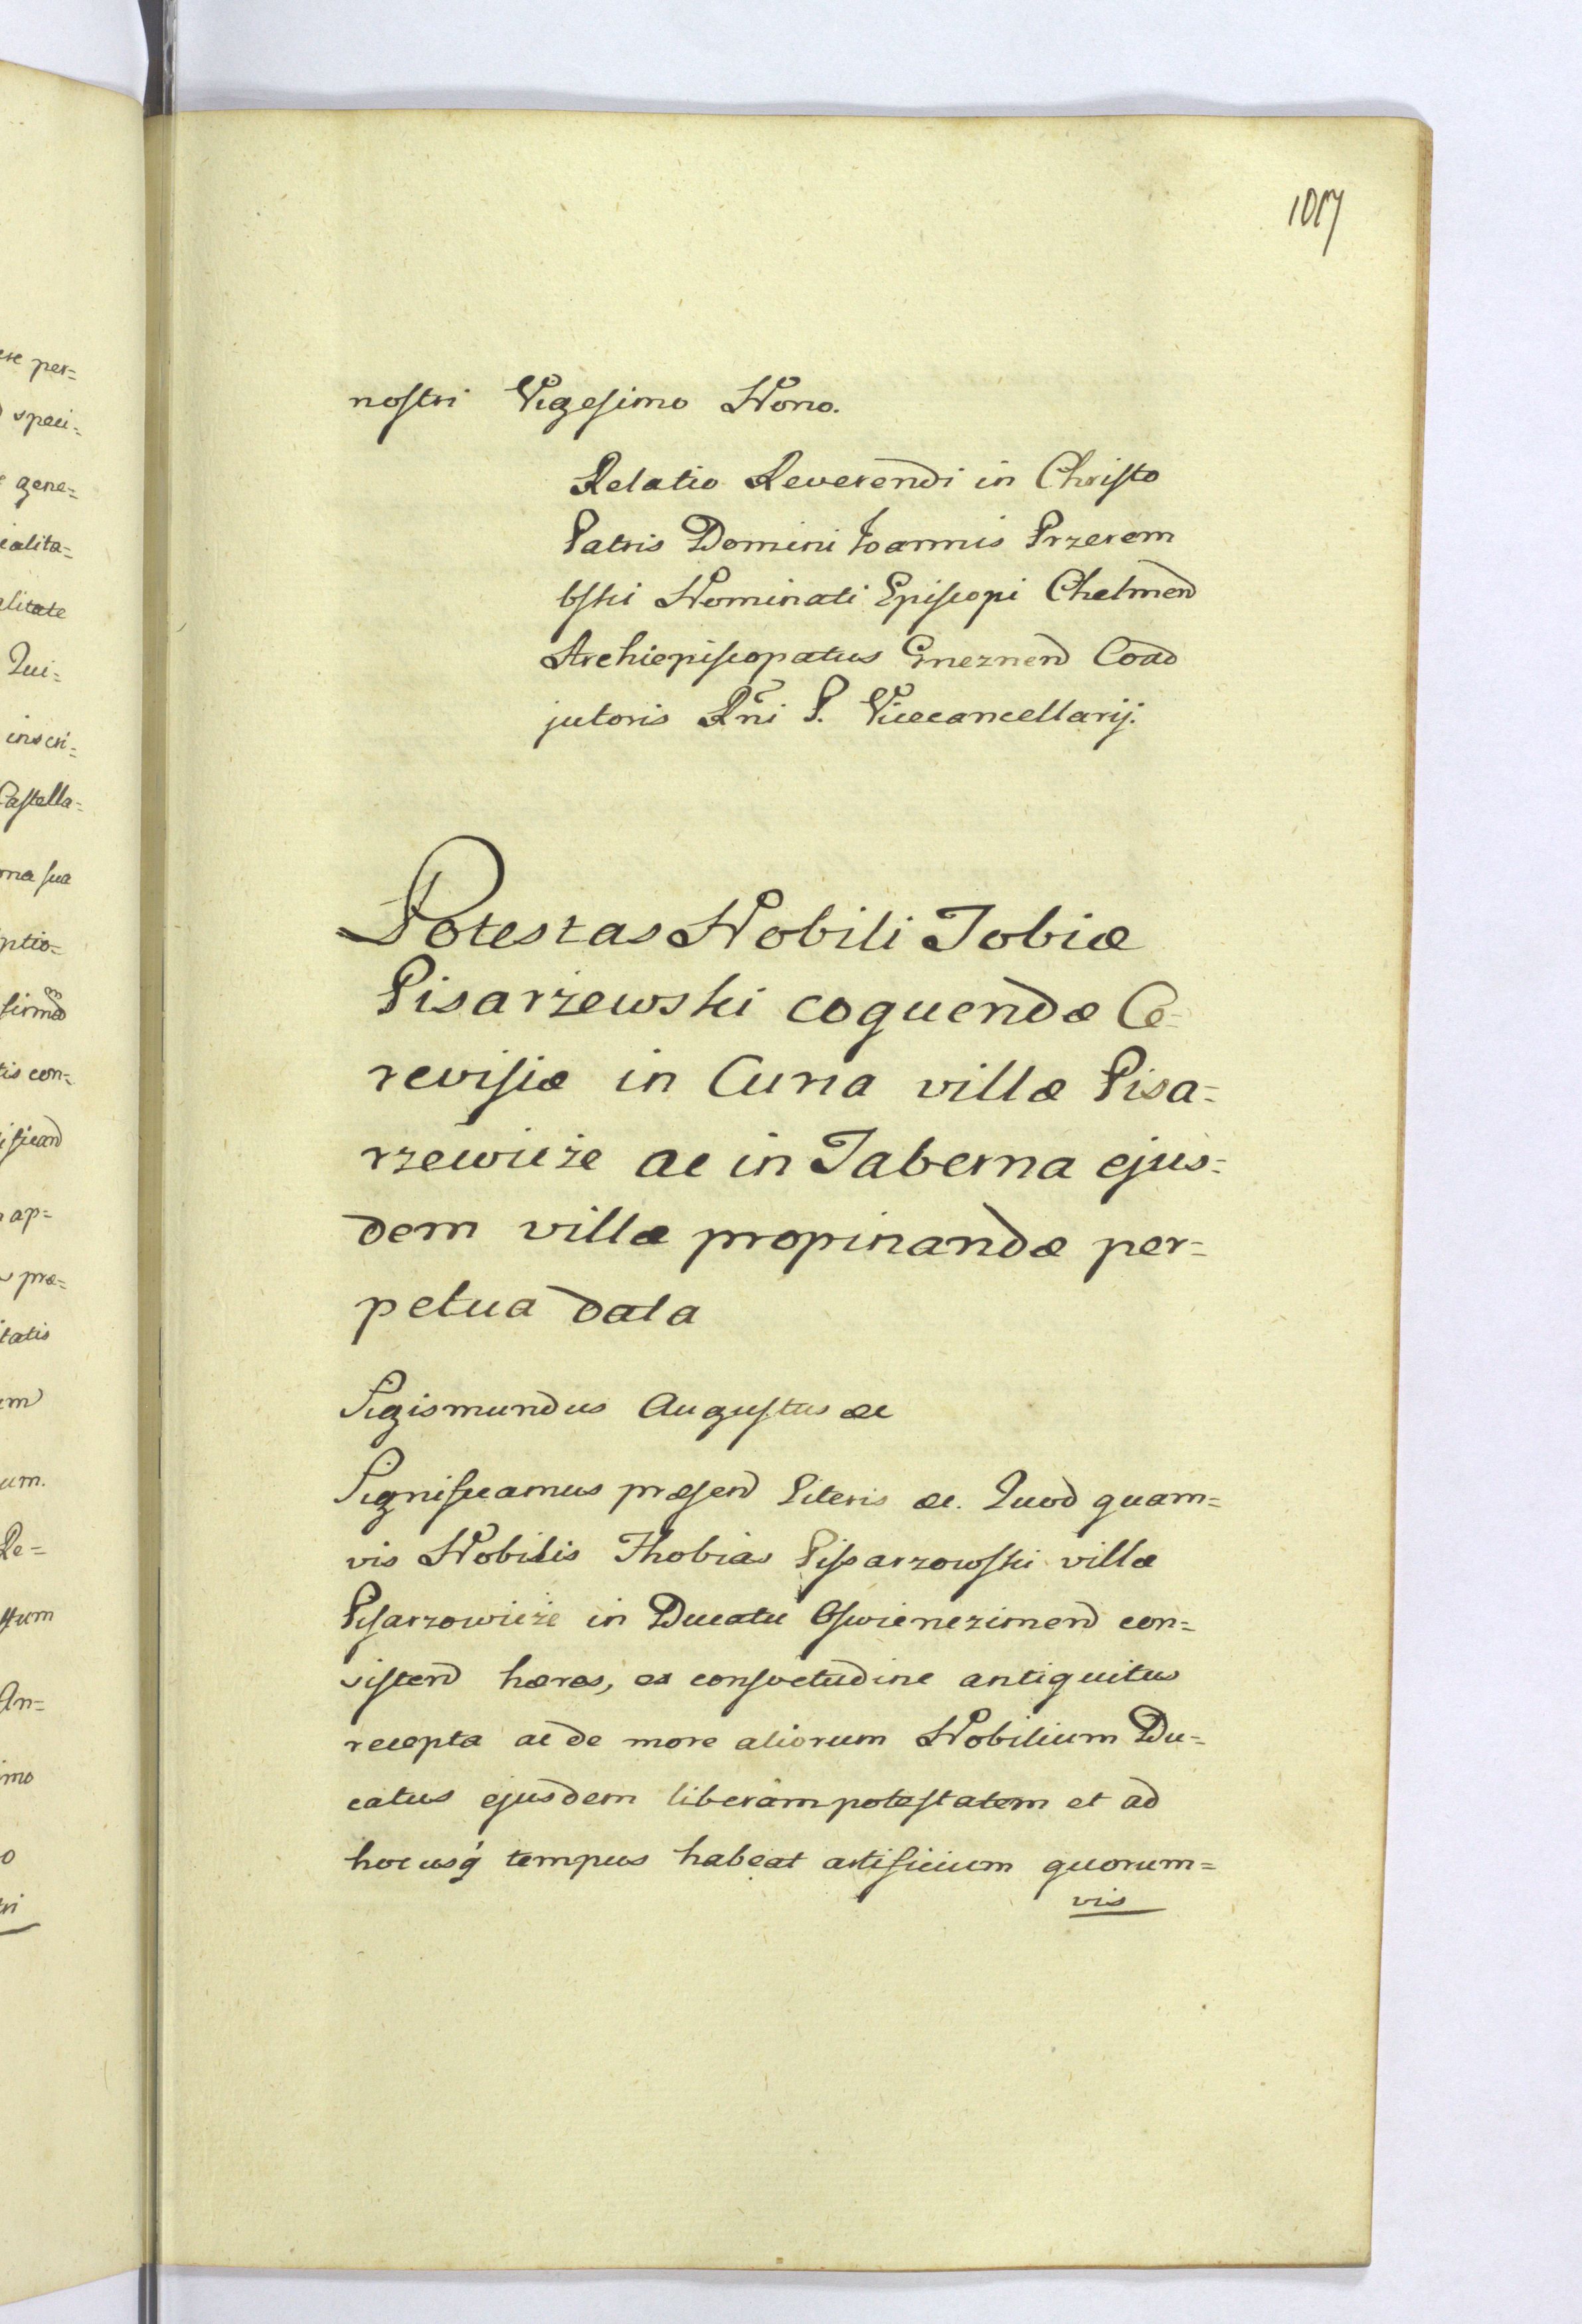 1017
nostri Vigesimo Nono.
Relatio Reverendi in Christo
Patris Domini Joannis Przerem
bski Nominati Episcopi Chelmen
Archiepiscopatus Gneznen Coad
jutoris Rñi P. Vicecancellarij.
Potestas Nobili Tobiæ
Pisarżewski coquendæ Ce=
revisiæ in Curia villæ Pisa=
rzewicże ac in Taberna ejus=
dem villæ propinandæ per=
petua data
Sigismundus Augustus &c
Significamus præsen Literis &c. Quod quam=
vis Nobilis Thobias Pisarzowski villæ
Pisarzowicże in Ducatu Oswienczimen con=
sisten hæres, ex consvetudine antiquitus
recepta ac de more aliorum Nobilium Du=
catus ejusdem liberam potestatem et ad
hoc usq́ tempus habeat artificium quorum=
vis
ere per=
speci=
gene=
ialita=
alitate
Qui=
inscri=
Castella=
ma sua
ptio=
tis con=
ap=
præ=
tatis
um
um.
Re=
stum
An=
imo
o
tri